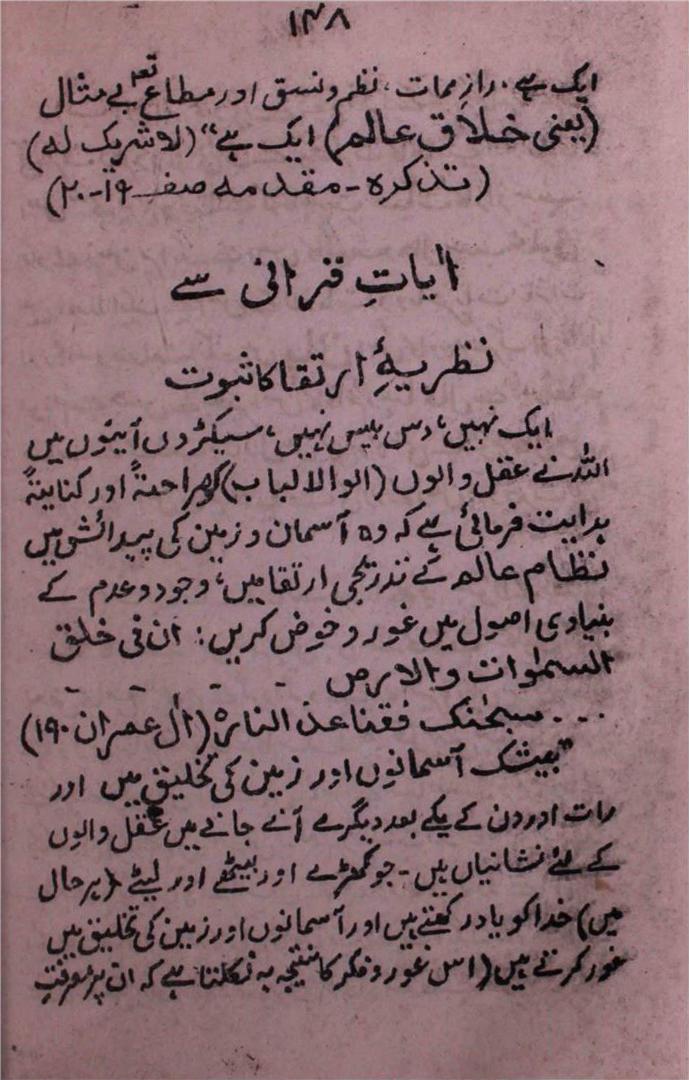 ۱۴۸
ایک ہے. رازِ ممات، نظم و نسق اور مطاع بے مثال
(یعنی خلاقِ عالم) ایک ہے" (لا شریک لہ)
(تذکرہ - مقدمہ صفہ ۱۹-۲۰)
اٰیاتِ قرانی سے
نظریۂ ارتقا کا ثبوت
ایک نہیں، دس بیس نہیں، سیکڑوں آیتوں میں
اللہ نے عقل والوں (الوالالباب) کو صراحتہً اور کنایتہً
ہدایت فرمائی ہے کہ وہ آسمان و زمین کی پیدائش میں
نظام عالم کے تدریجی ارتقا میں، وجود و عدم کے
بنیادی اصول میں غور و خوض کریں: ان فی خلق
السمٰوات والارض - - - -
... سبحٰنک فقنا عذ النارہ (اٰل عمران ۱۹۰)
"بیشک آسمانوں اور زمین کی تخلیق میں اور
رات اور دن کے یکے بعد دیگرے آنے جانے میں عقل والوں
کے لئے نشانیاں ہیں - جو کھڑے اور بیٹھے اور لیٹے (ہر حال
میں) خدا کو یاد رکھتے ہیں اور آسمانوں اور زمین کی تخلیق میں
غور کرتے ہیں (اس غور و فکر کا نتیجہ یہ نکلتا ہے کہ ان پر معرفتِ